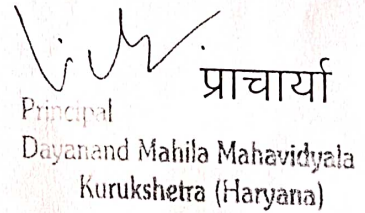 प्राचार्या
Principal
Dayanand Mahila Mahavidyala
Kurukshetra (Haryana)